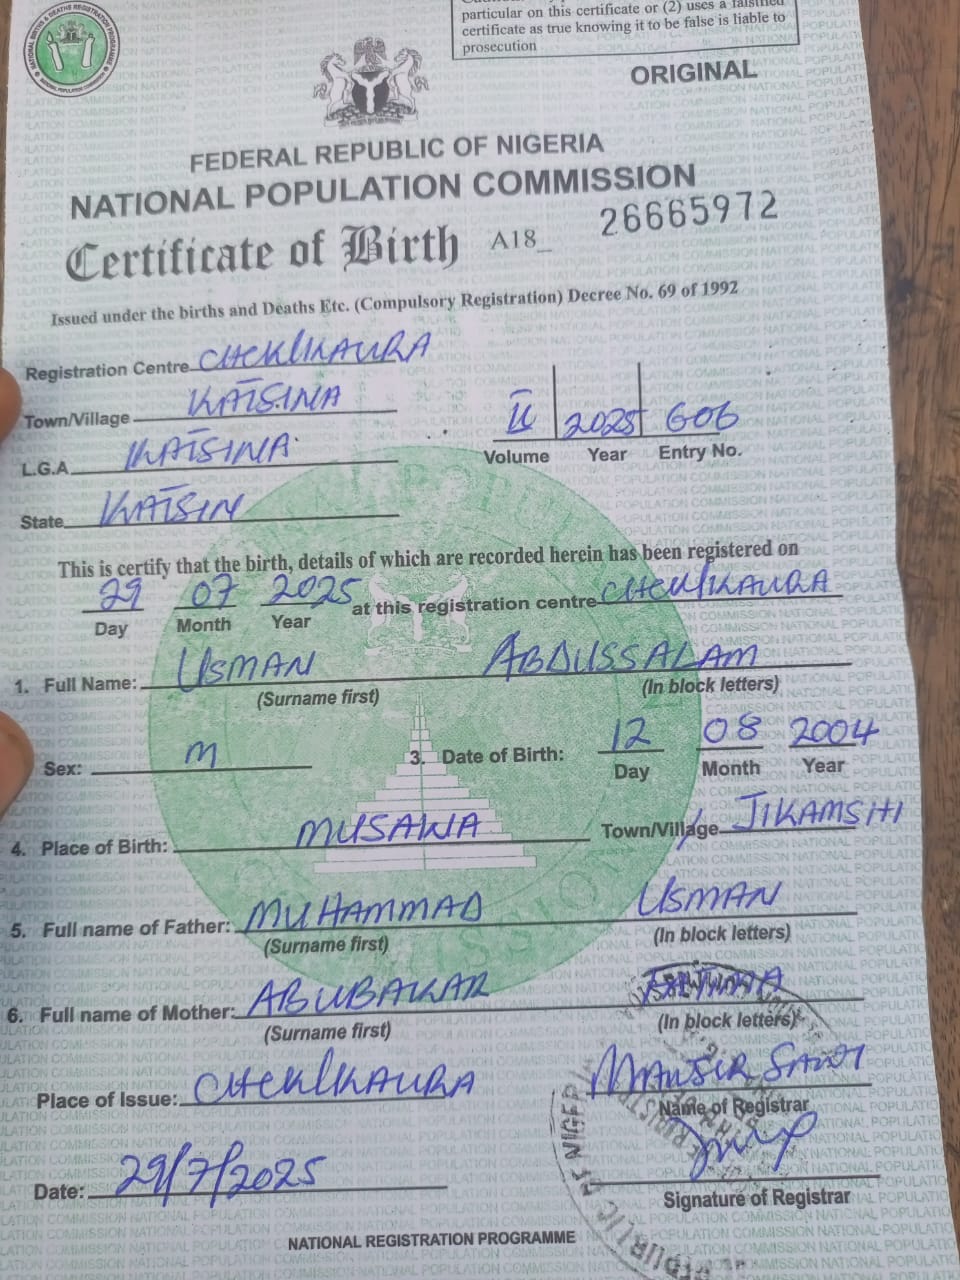 particular on this certificate or (2) uses a falsified
certificate as true knowing it to be false is liable to
prosecution
NATIONAL BIRTHS & DEATHS REGISTRATION PROGRAMME
NATIONAL POPULATION COMMISSION
ORIGINAL
FEDERAL REPUBLIC OF NIGERIA
NATIONAL POPULATION COMMISSION
Certificate of Birth A18_ 26665972
Issued under the births and Deaths Etc. (Compulsory Registration) Decree No. 69 of 1992
Registration Centre CHEKLIKAURA
Town/Village KATSINA
II 2025 606
Volume Year Entry No.
L.G.A KATSINA
State KATSIN
This is certify that the birth, details of which are recorded herein has been registered on
29 07 2025 at this registration centre
Day Month Year
1. Full Name: USMAN ABDUSSALAM
(Surname first) (In block letters)
Sex: M 3. Date of Birth: 12 08 2004
Day Month Year
4. Place of Birth: MUSAWA Town/Village JIKAMSHI
5. Full name of Father: MUHAMMAD USMAN
(Surname first) (In block letters)
6. Full name of Mother: ABUBAKAR
(Surname first) (In block letters)
Place of Issue:
MANSIR SANI
Name of Registrar
Date: 29/7/2025
Signature of Registrar
NATIONAL REGISTRATION PROGRAMME